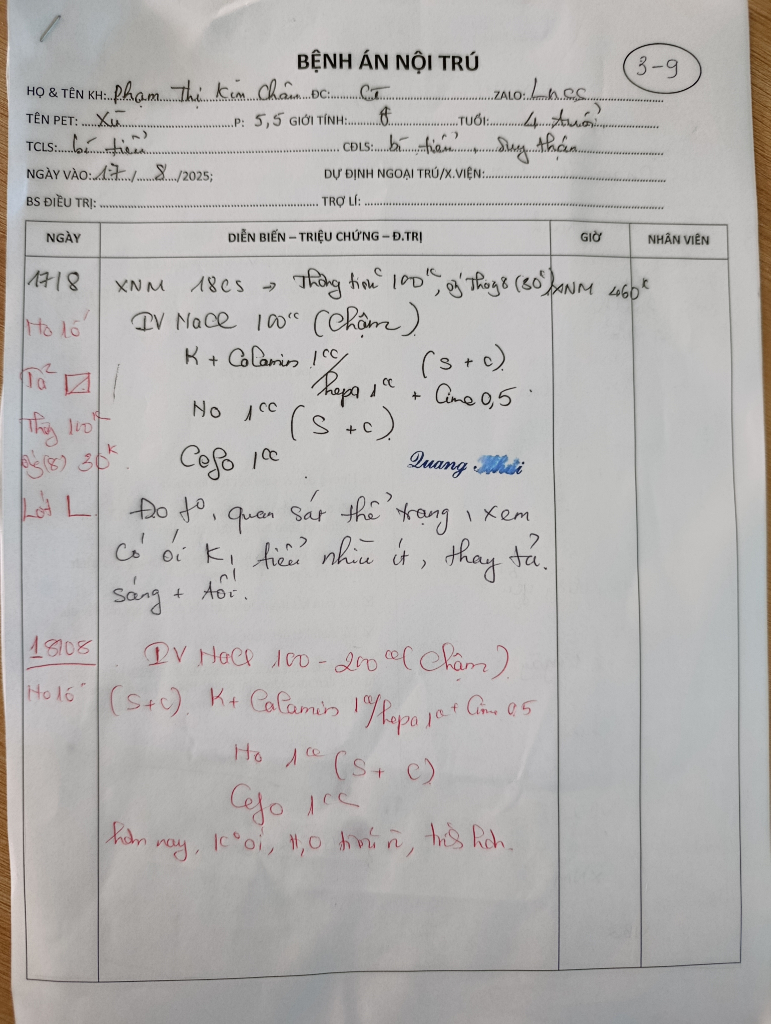 BỆNH ÁN NỘI TRÚ
3-9
HỌ & TÊN KH: Phạm Thị Kim Châu ĐC: CT ZALO:
TÊN PET: Xù P: 5,5 GIỚI TÍNH: TUỔI: 4 tuổi
TCLS: bí tiểu CĐLS: bí tiểu, suy thận
NGÀY VÀO: 17/8/2025; DỰ ĐỊNH NGOẠI TRÚ/X.VIỆN:
BS ĐIỀU TRỊ: TRỢ LÍ:
NGÀY DIỄN BIẾN – TRIỆU CHỨNG – Đ.TRỊ GIỜ NHÂN VIÊN
17/8 XNM 18CS → Thông tiểu 100K, (30K) XNM 460K
IV NaCl 100cc (Chậm)
K + Calamin 1cc/hepa 1cc + Cime 0,5 (S + C)
Tã
No 1cc (S + C)
100K
(8) 30K
Cefo 1cc
Quang
Lót L
Đo t°, quan sát thể trạng, xem
có ói K, tiểu nhìu ít, thay tả.
sáng + tối.
18/08 IV NaCl 100-200cc (Chậm)
(S+C) K+ Calamin 1cc/hepa 1cc + Cime 0,5
No 1cc (S + C)
Cefo 1cc
hôm nay, K° ói,